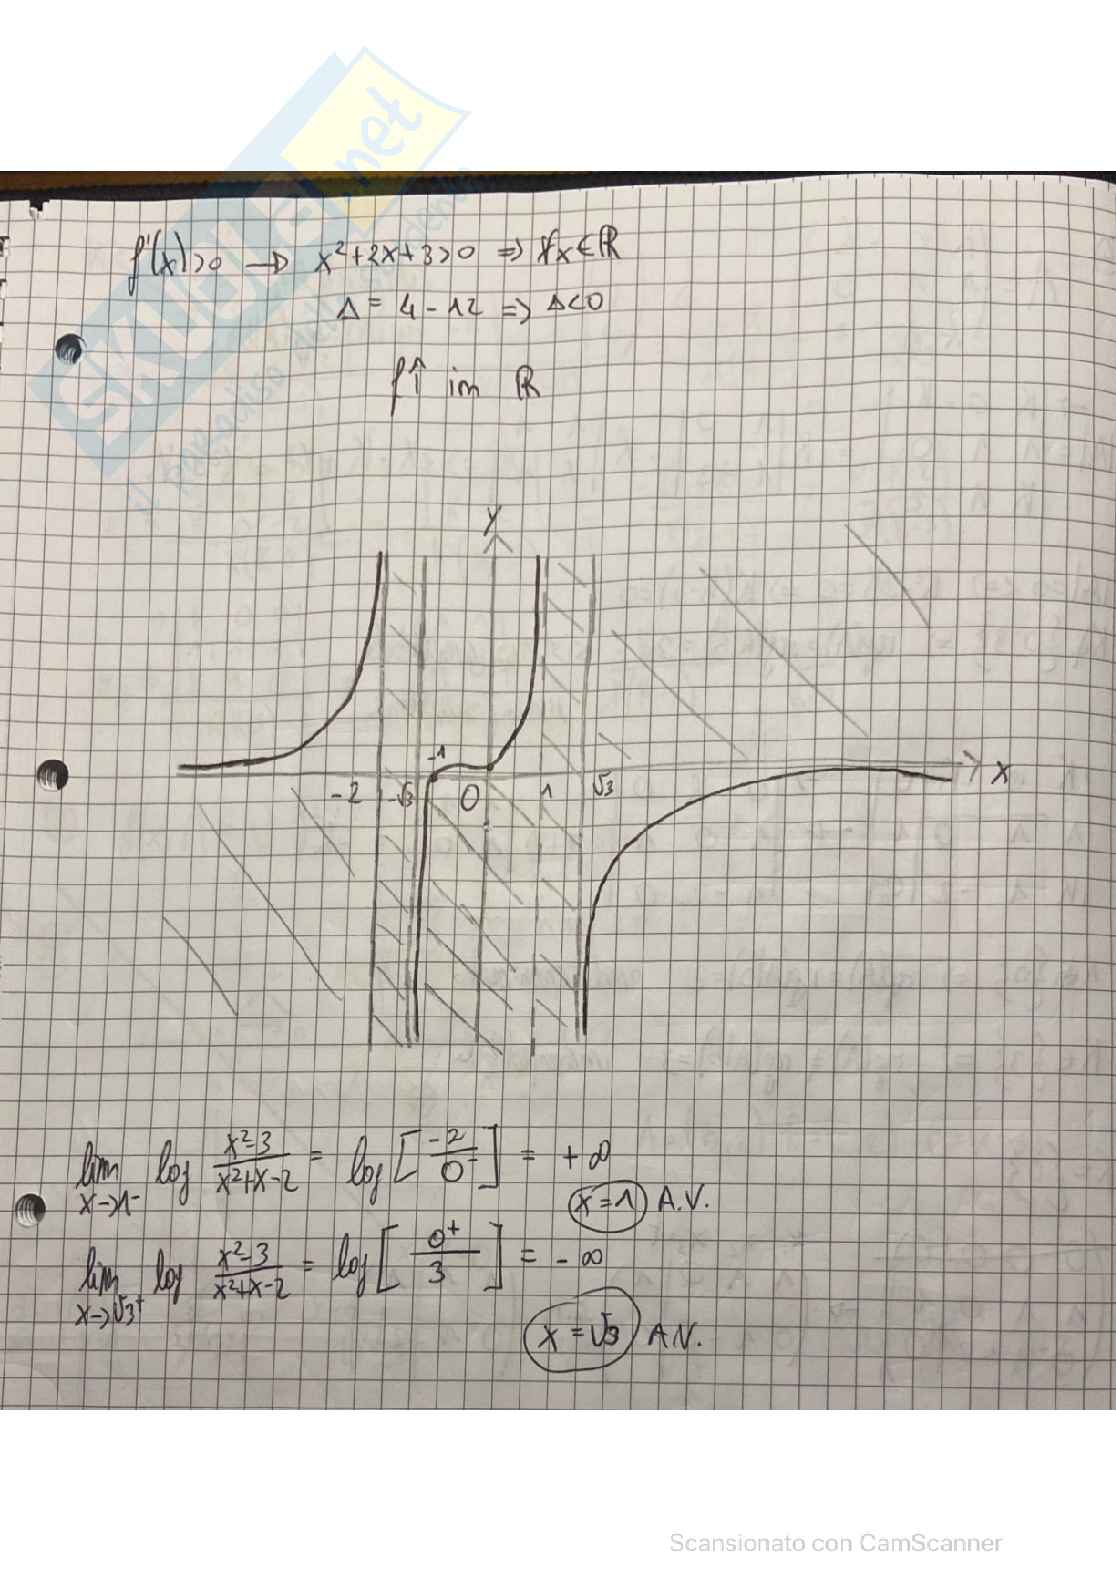 SKUOLA.net
f'(x)>0 → x²+2x+3>0 => ∀x∈ℝ
Δ = 4-12 => Δ<0
f↑ im ℝ
y
-1
-2 -√3 0 1 √3 x
lim x→1⁻ log (x²-3)/(x²+x-2) = log [-2/0⁻] = +∞
x=1 A.V.
lim x→√3⁺ log (x²-3)/(x²+x-2) = log [0⁺/3] = -∞
x=√3 A.V.
Scansionato con CamScanner